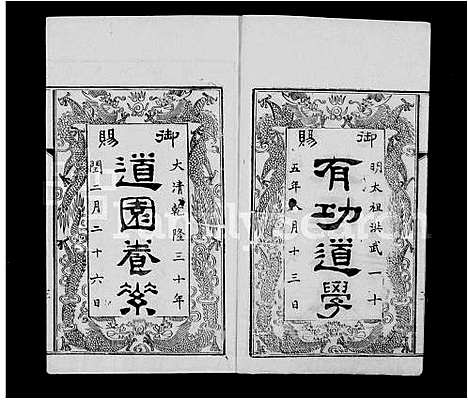 御賜
明太祖洪武一十
有功道學
五年八月十三日
御賜
大清乾隆三十年
道園養素
閏二月二十六日